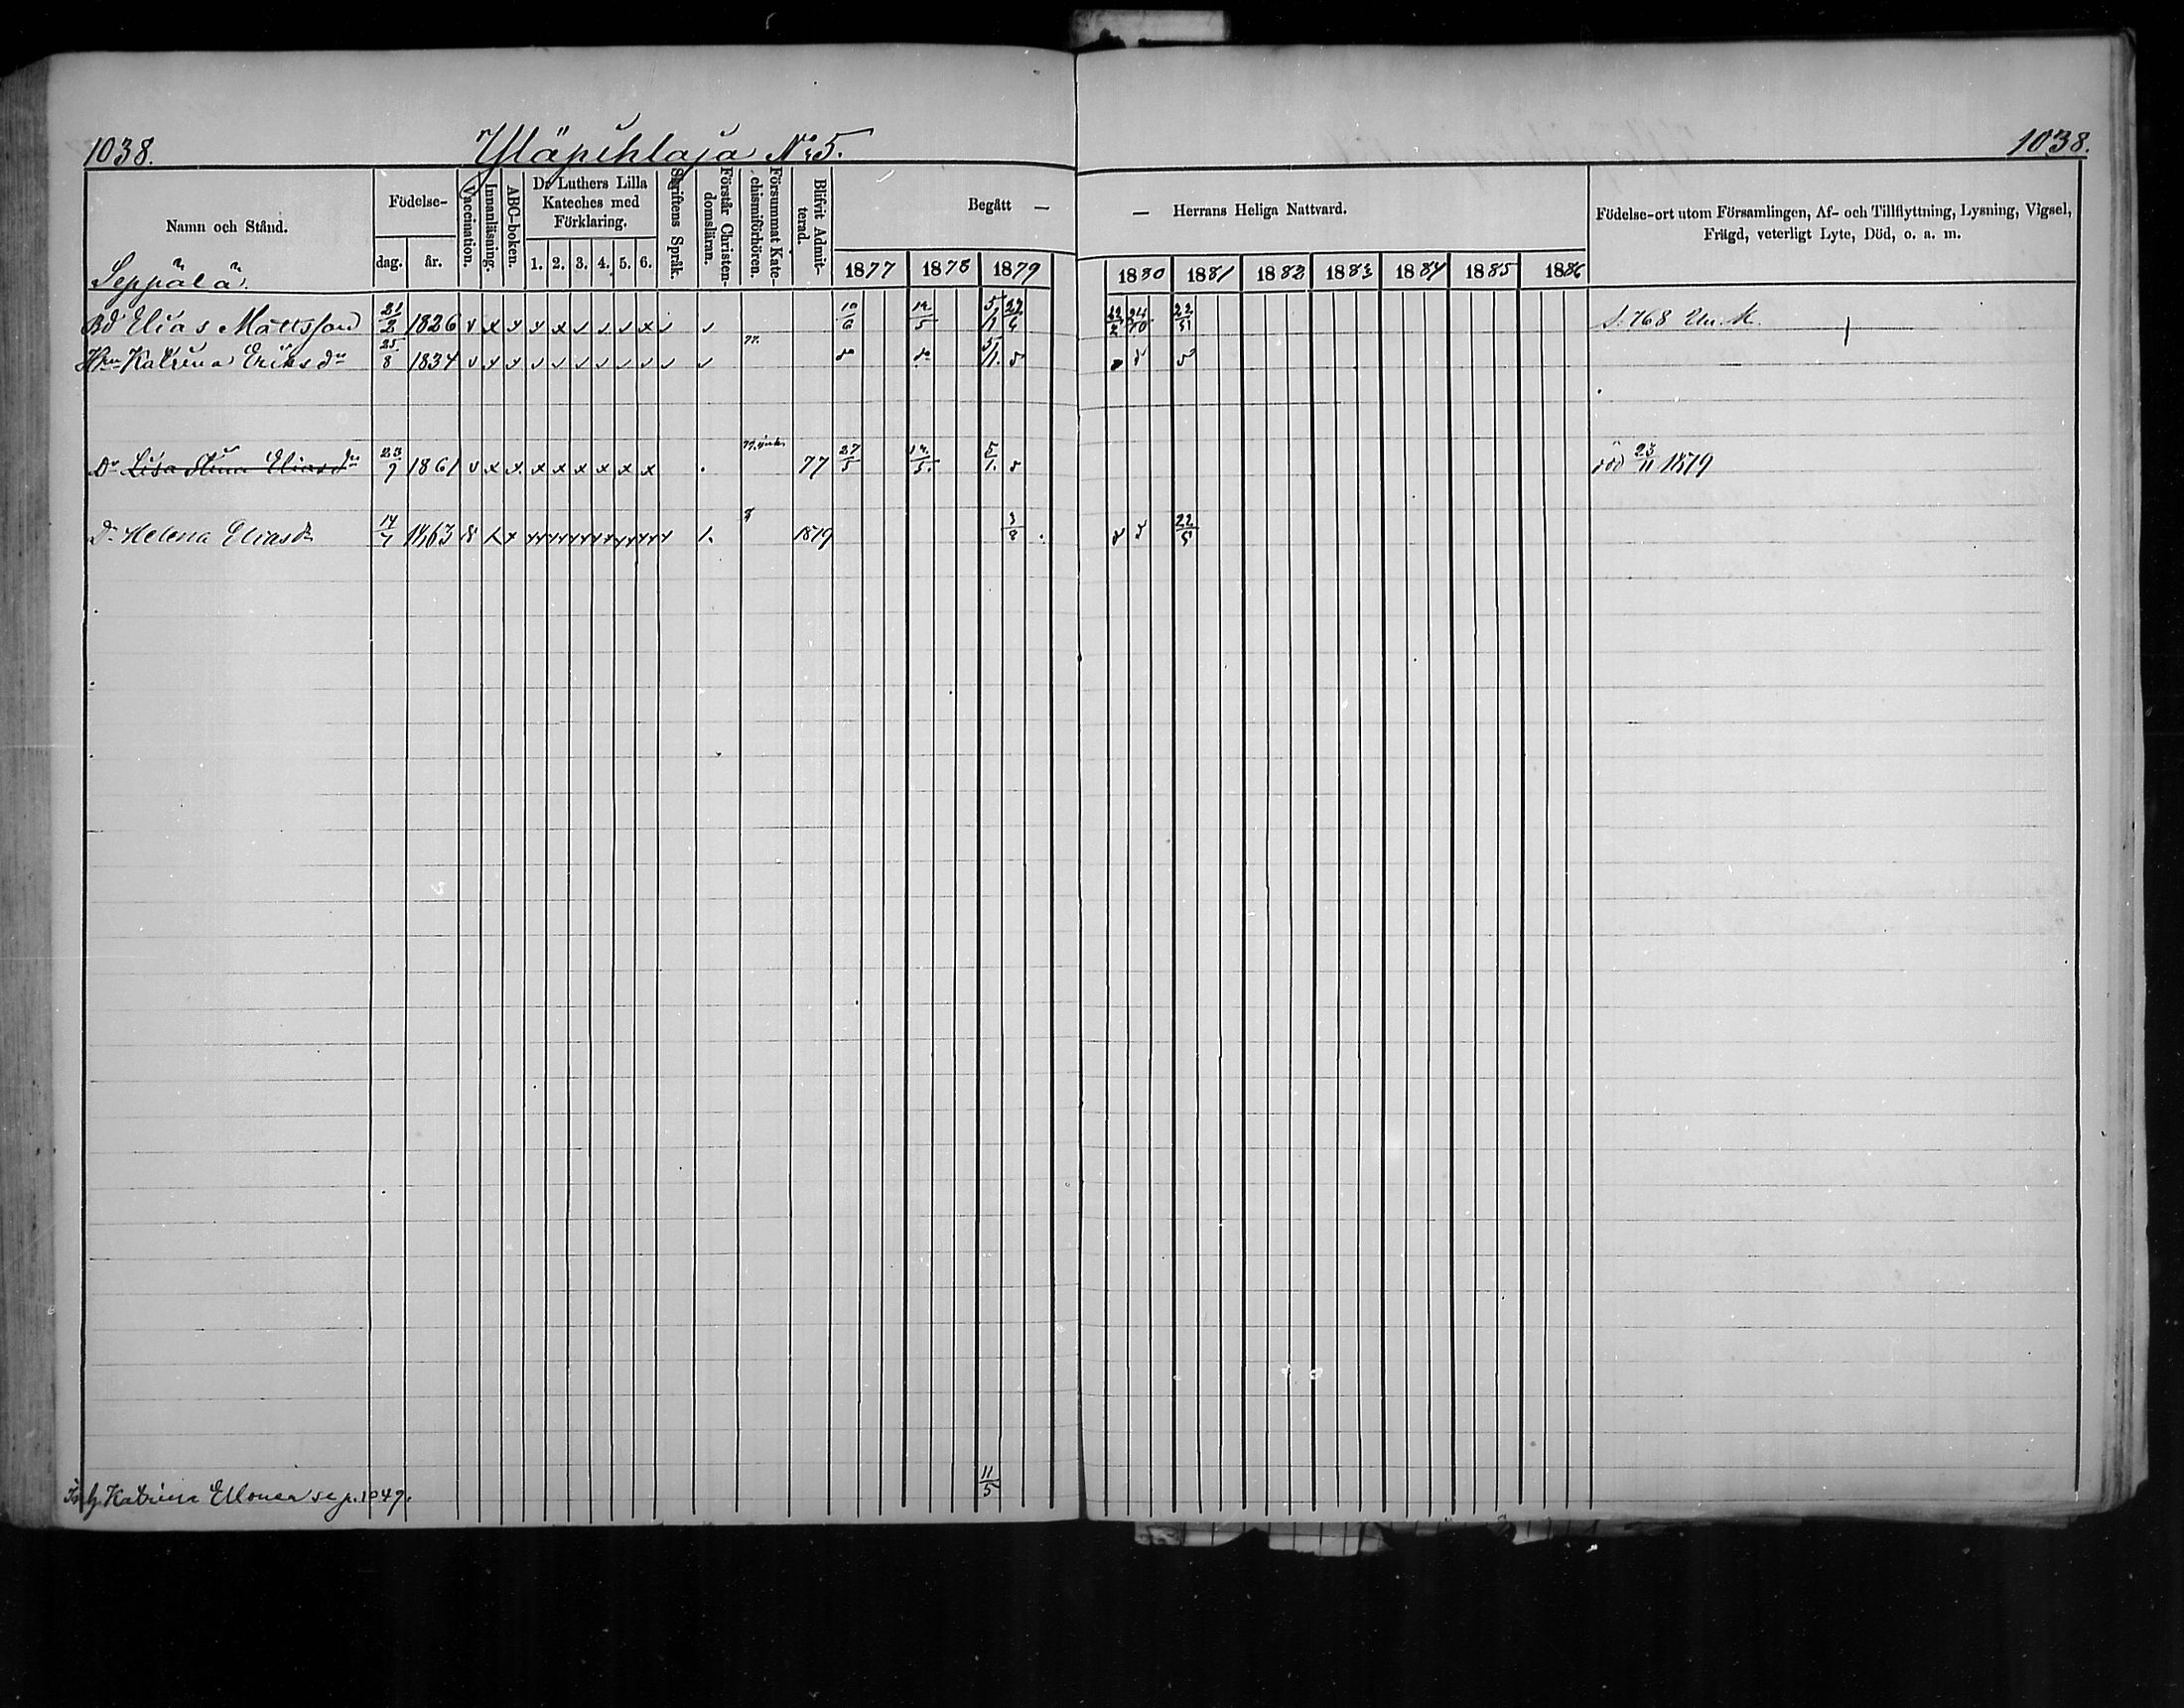 1038. Yläpihlaja No 5. 1038.
Namn och Stånd. Födelse- dag. år. Vaccination. Innanläsning. ABC-boken. Dr Luthers Lilla Kateches med Förklaring. 1. 2. 3. 4. 5. 6. Skriftens Språk. Förstår Christendomsläran. Försummat Katechismiförhören. Blifvit Admitterad. Begått — — Herrans Heliga Nattvard. Födelse-ort utom Församlingen, Af- och Tillflyttning, Lysning, Vigsel, Frägd, veterligt Lyte, Död, o. a. m.
1877 1878 1879 1880 1881 1882 1883 1884 1885 1886
Seppälä.
Bd Elias Mattsson 21/2 1826 v x v v x v v v x v v 10/6 12/5 5/1 29/6 22/2 24/10 22/51 S. 768
Hru Katrina Eriksdr 25/8 1834 77. do do 5/1.
Dr Lisa Stina Eliasdr 23/9 1861 v x x x x x x x x 77 27/5 12/5. 5/1. död 23/11 1879
Dr Helena Eliasdr 14/7 1863 1879 3/8 22/5
Katrina Ellonen se p. 1047. 11/5